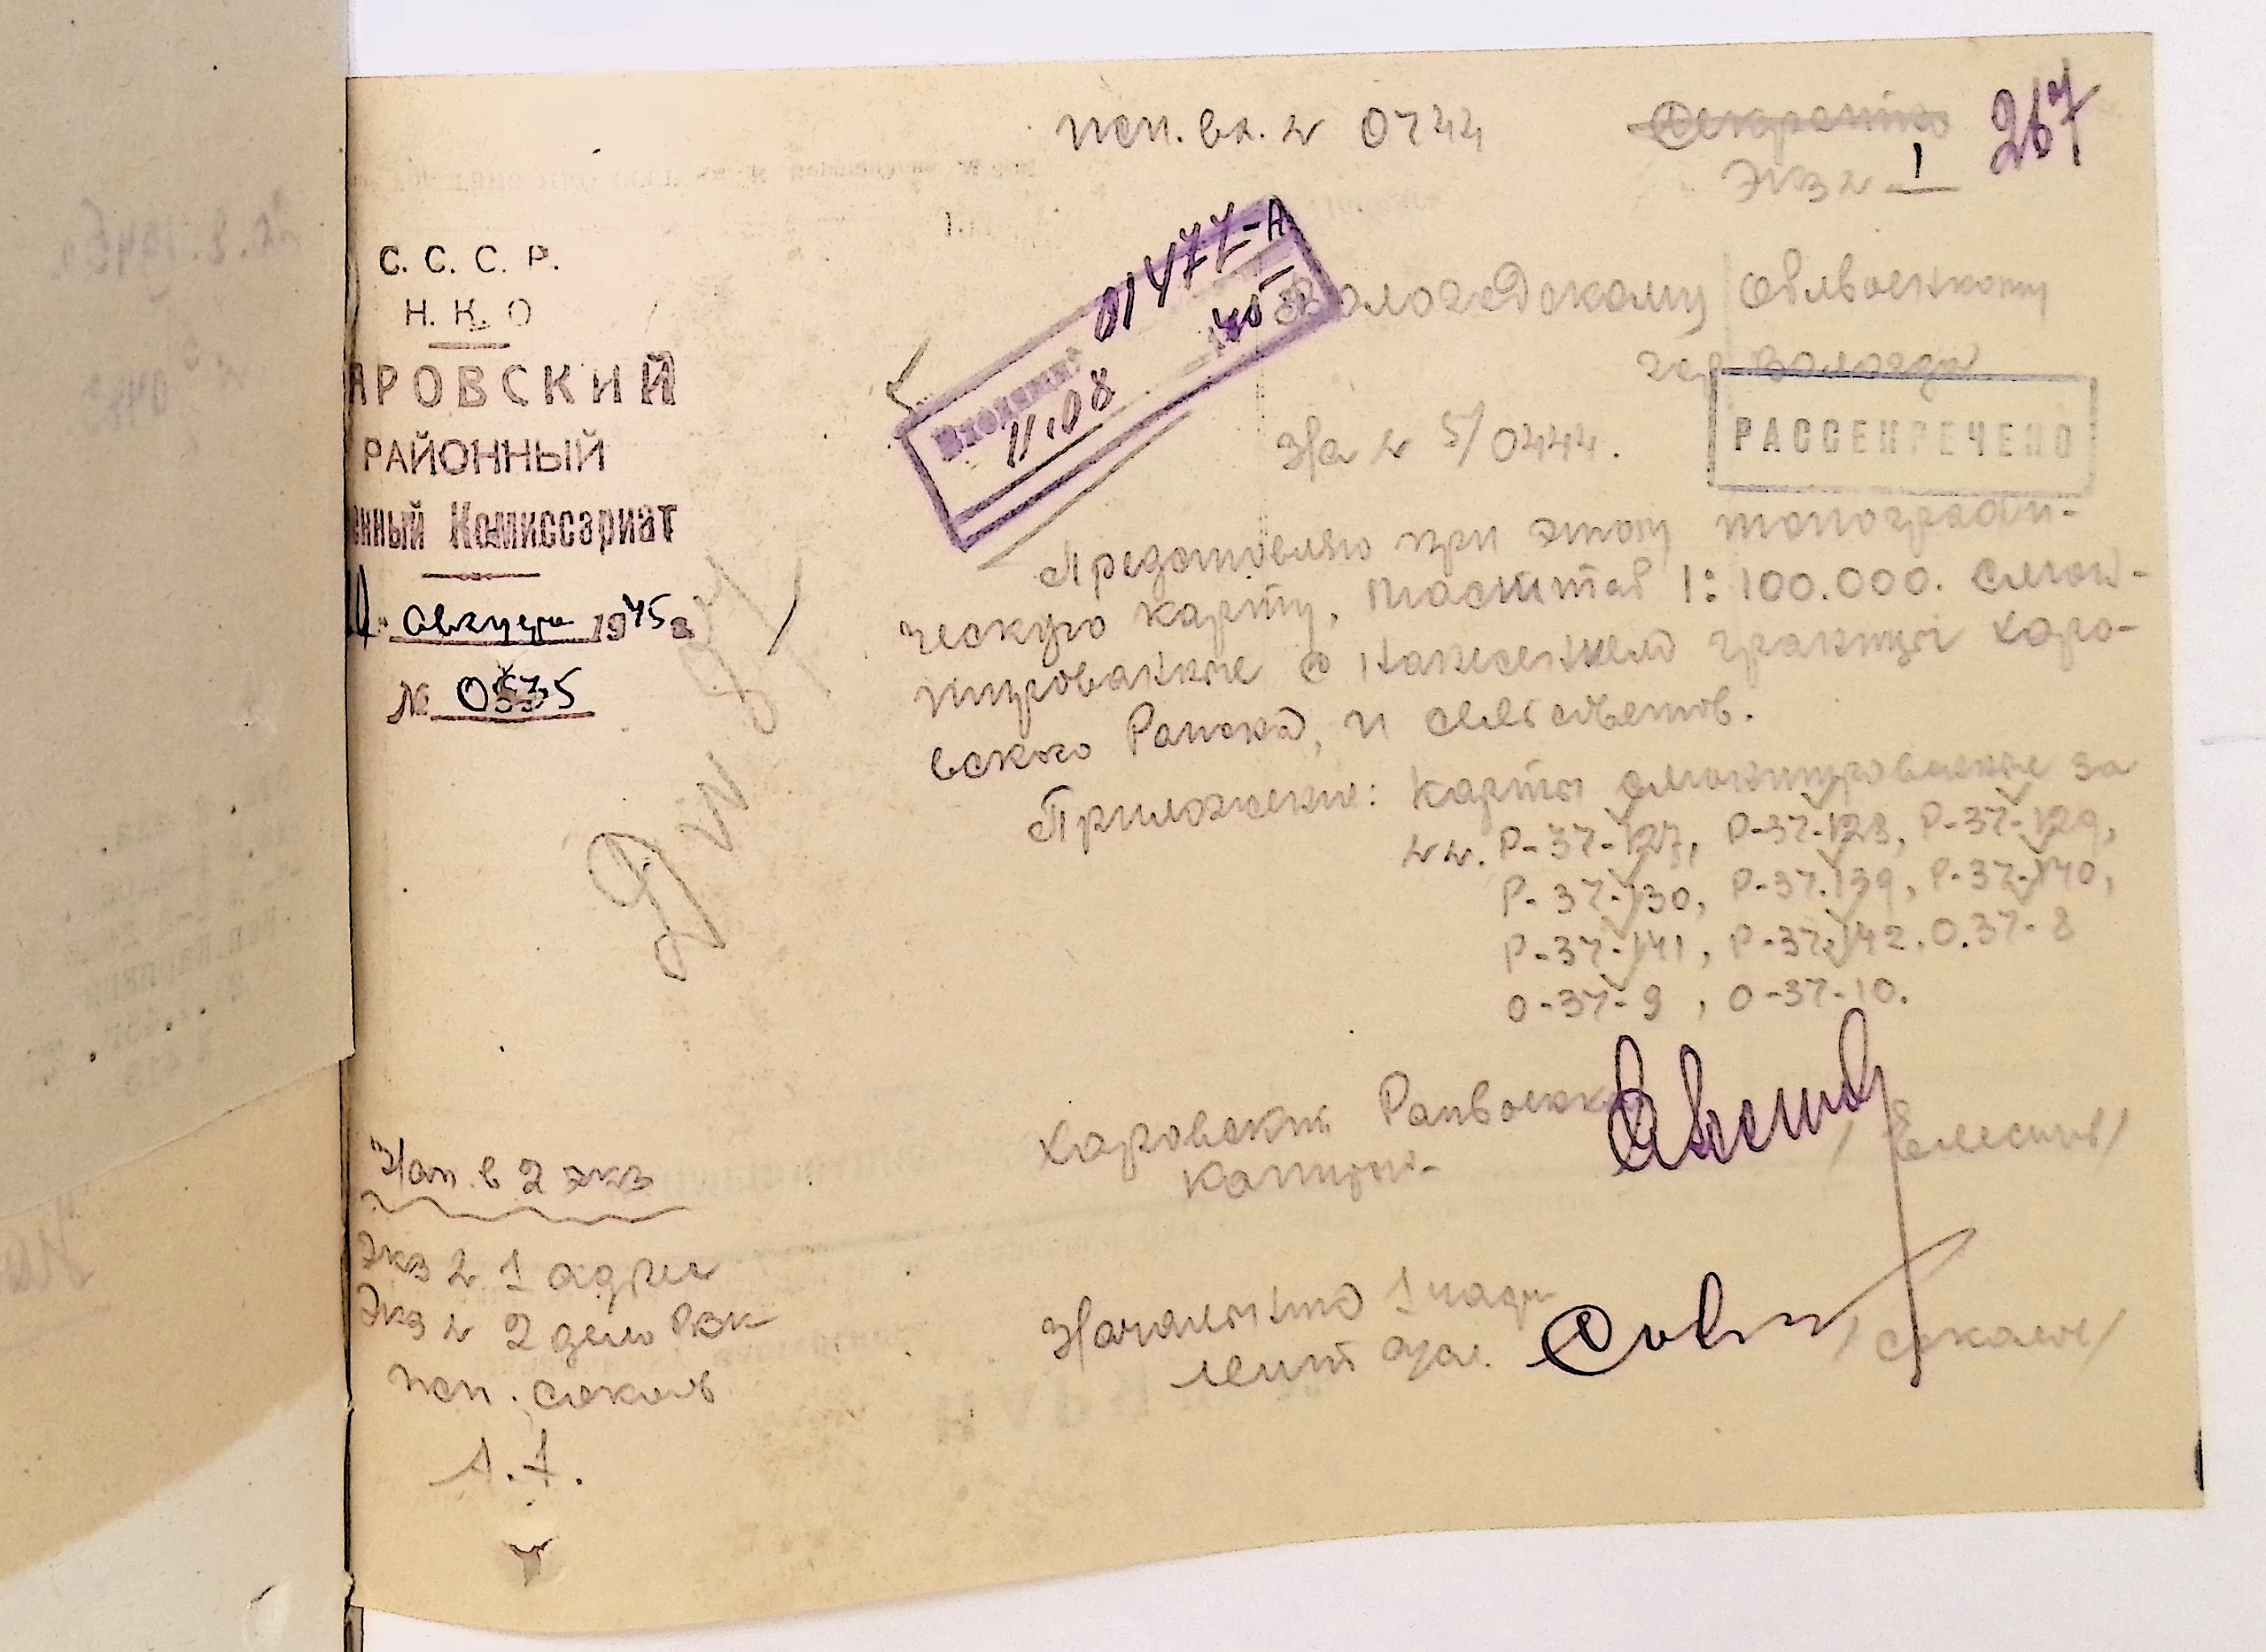 исп. вх. № 0744
Секретно
267
Экз № 1
С. С. С. Р.
Н. К. О
АРОВСКИЙ
РАЙОННЫЙ
енный Комиссариат
августа 1945 г
№
01477-А
Входящий
11.08
45
Вологодскому Облвоенкому
гор Вологда
На № 5/0444.
РАССЕКРЕЧЕНО
Представляю при этом топографи-
ческую карту, масштаб 1:100.000. смон-
тированные с нанесением границы Харо-
вского Района, и сельсоветов.
Приложение: Карты смонтированные за
№№. Р-37-127, Р-37-128, Р-37-129,
Р-37-130, Р-37-139, Р-37-140,
Р-37-141, Р-37-142. О.37-8
О-37-9, О-37-10.
Харовский Райвоенком
Капитан-
Начальник 1 части
лейт
Нап. в 2 экз
Экз № 1 адрес
Экз № 2 дело РВК
исп.